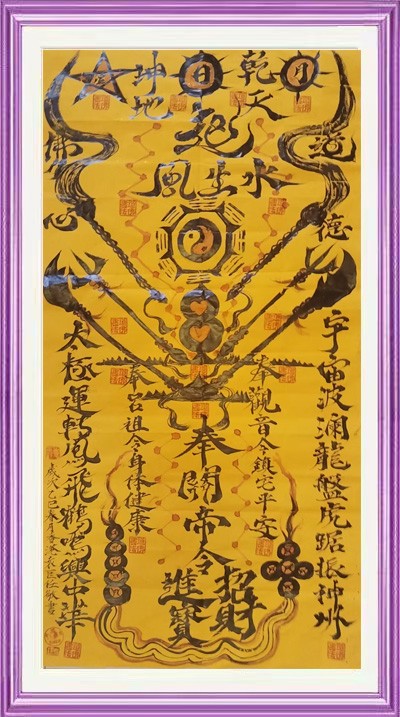 月
乾天
日
坤地
起
風生水
道德
佛心
宇宙波瀾龍盤虎踞振神州
奉觀音令鎮宅平安
奉關帝令
招財
進寶
奉呂祖令身体健康
太極運轉鳳飛鶴鳴興中華
歲次乙巳春月
敬書